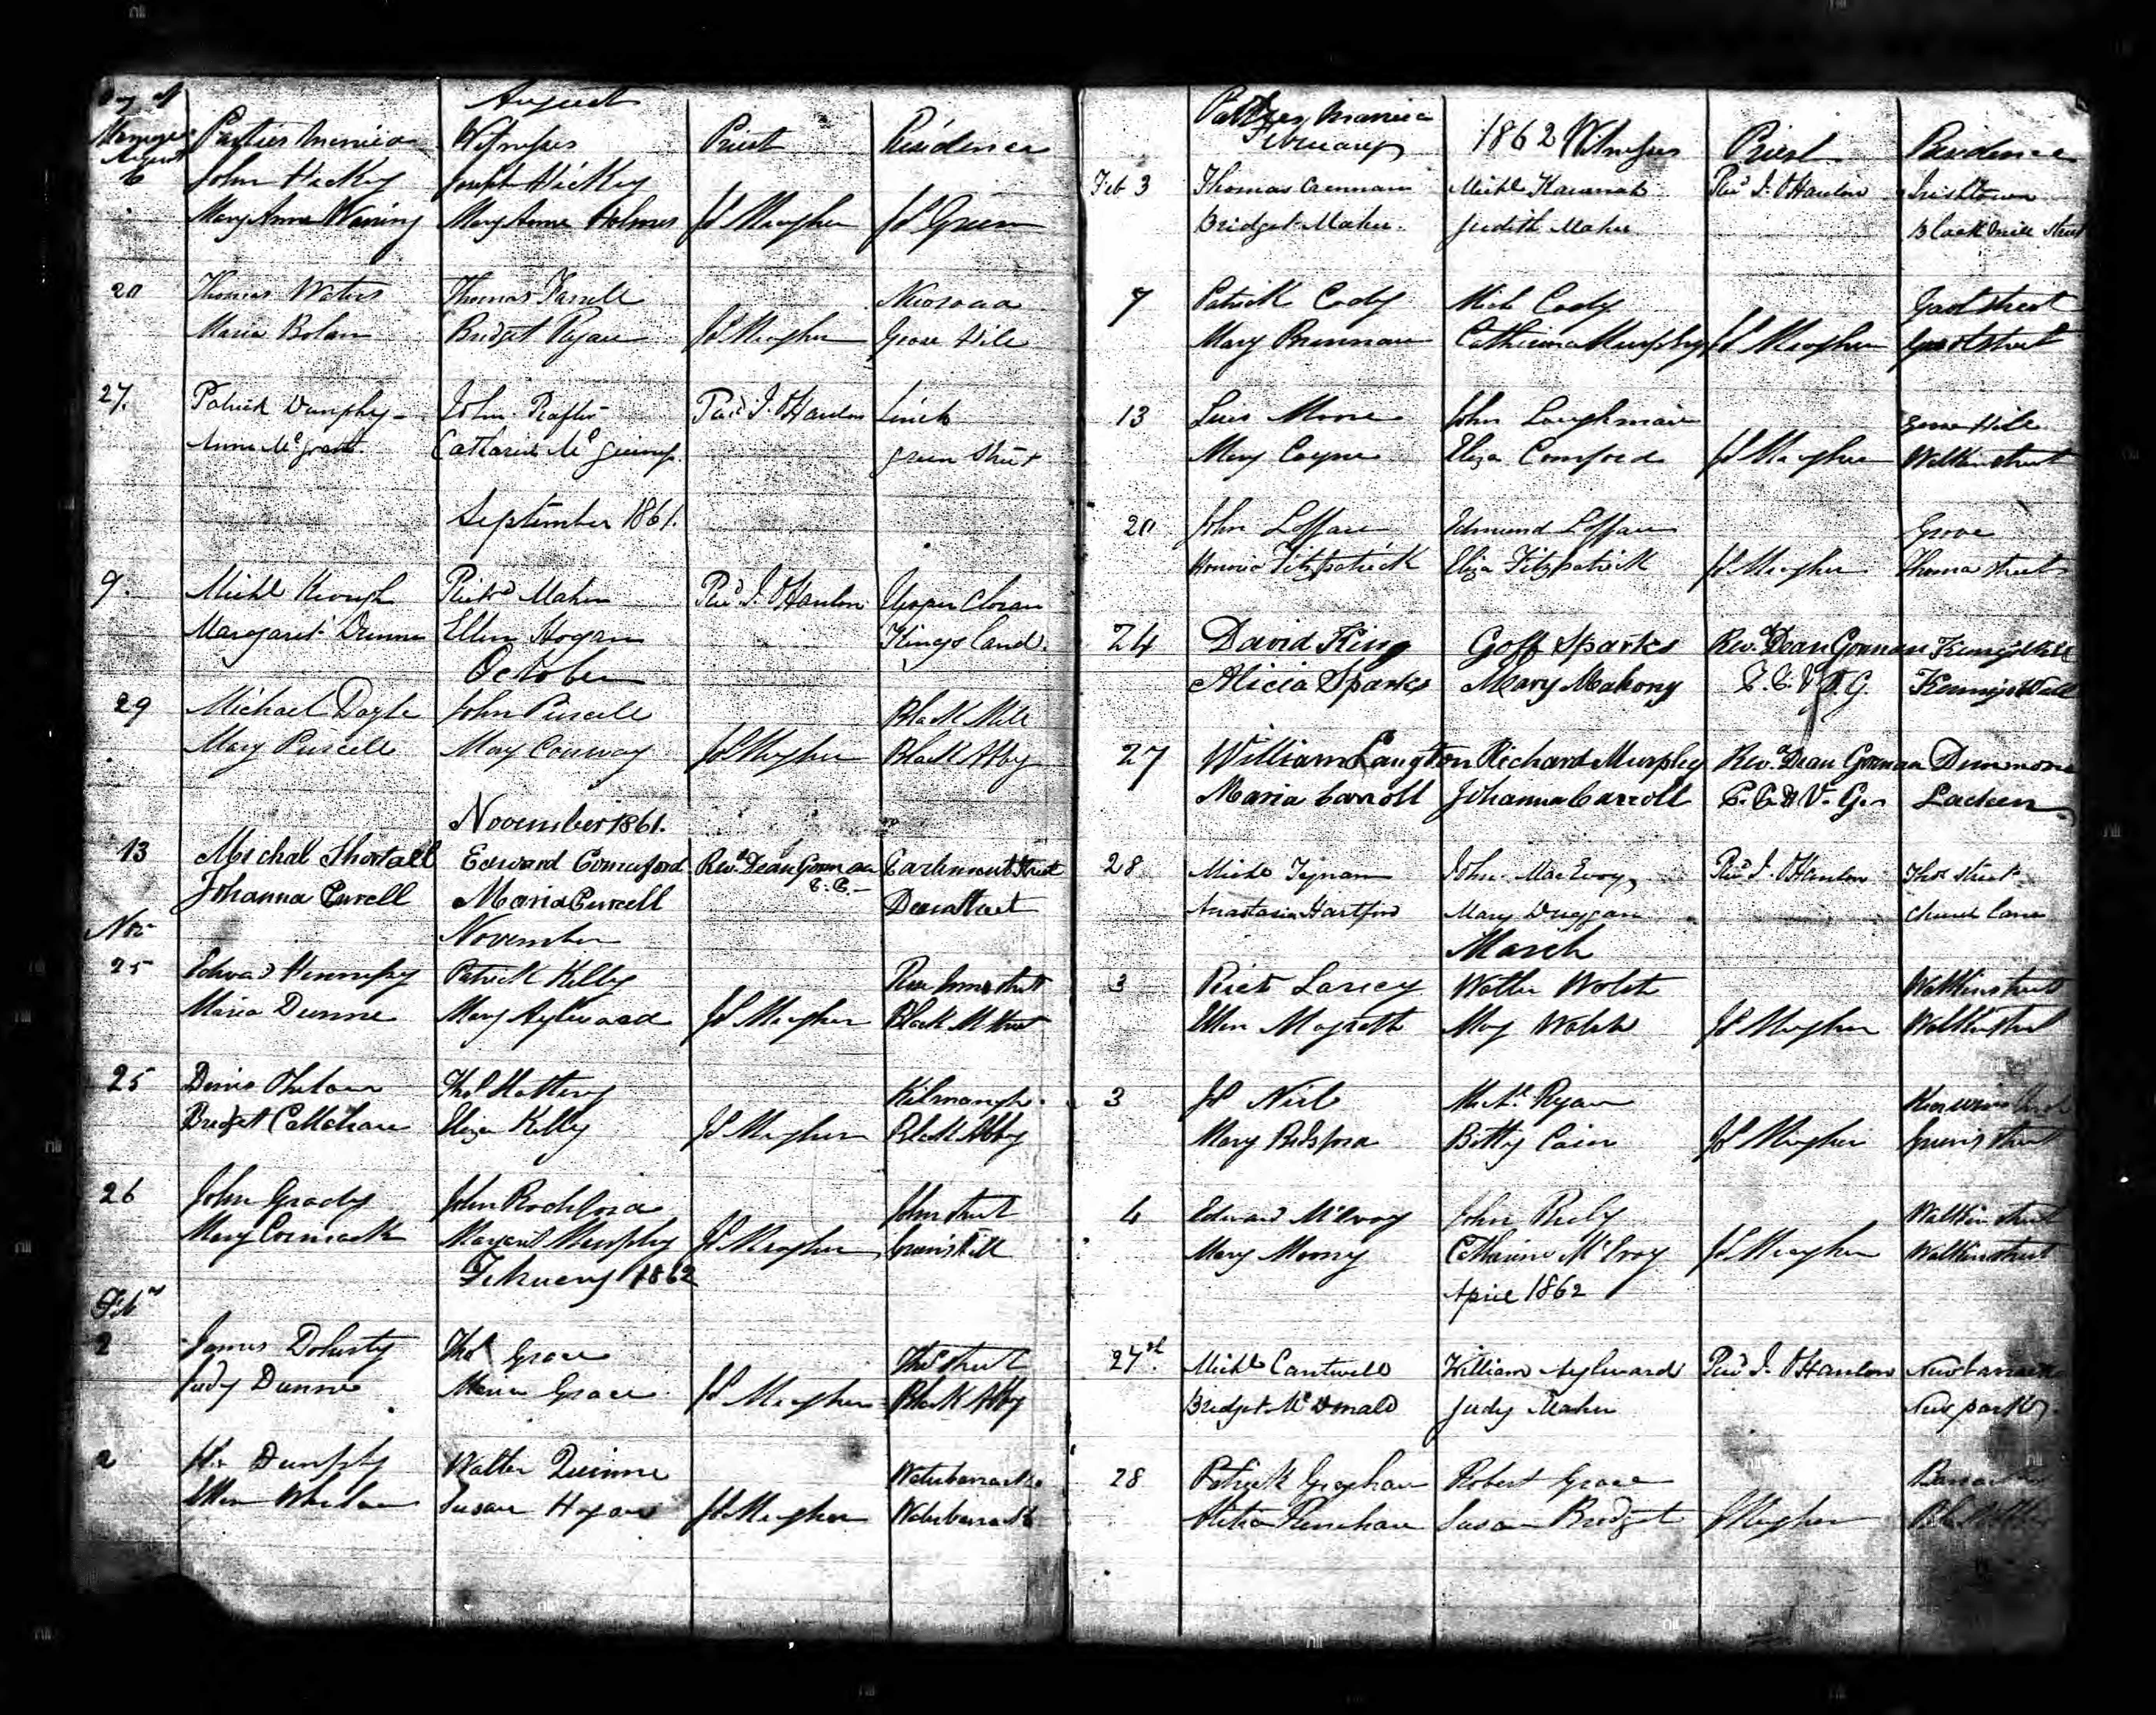 August
Parties Married Witnesses Priest Residence
August
6 John Hickey Joseph Hickey
Mary Anne Waring Mary Anne Holmes Js Meagher Js Green
20 Thomas Waters Thomas Farrell Newroad
Maria Bolan Bridget Ryan Js Meagher Goose Hill
27. Patrick Dunphy John Rafter Revd J. O'Hanlon
Anne McGrath Catharine McGuiness Green Street
September 1861.
9. Michl Keough Richd Maher Revd J. O'Hanlon Upper Cloran
Margaret Dunne Ellen Hogan Kingsland.
October
29 Michael Doyle John Purcell Black Mill
Mary Purcell Mary Conway Js Meagher Black Abby
November 1861.
13 Michal Shortall Edward Comerford Revd Dean Gorman Parliment Street
Johanna Purcell Maria Purcell Dean Street
Nov November
25 Edward Hennessy Patrick Kelly
Maria Dunne Mary Aylward Js Meagher Black M Street
25 Denis Thos Slattery Kilmanagh.
Bridget Callahane Eliza Kelly Js Meagher Black Abby
26 John Grady John Rochford John Street
Mary Cormack Margaret Murphy Js Meagher Greenshill
February 1862
Feb
2 James Doherty Thos Grace Thos Street
Judy Dunne Maria Grace Js Meagher Black Abby
2 Dunphy Walter Quinne Waterbarrack
Ellen Whelan Susan Hogan Js Meagher Waterbarrack
Parties Married
February 1862 Witnesses Priest Residence
Feb 3 Thomas Brennan Michl Kavanah Revd J. O'Hanlon Irishtown
Bridget Maher. Judith Maher Black Mill Street
7 Patrick Cody Mich Cody Gaol Street
Mary Brennan Catherine Murphy Js Meagher Gaol Street
13 Moore John Loughman Goose Hill
Mary Coyne Eliza Comford Js Meagher Walkin Street
20 John Loffan Edmund Loffan Grove
Honoria Fitzpatrick Eliza Fitzpatrick Js Meagher Thomas Street
24 David King Goff Sparks Revd Dean Gorman
Alicia Sparks Mary Mahony
27 William Langton Richard Murphy Revd Dean Gorman Dunmore
Maria Carroll Johanna Carroll P. P. & V. G. Lacken
28 Michl Tynan John MacEvoy Revd J. O'Hanlon Thos Street
Anastasia Hartford Mary Duggan Church Lane
March
3 Richd Walter Walsh Walkin Street
Ellen Magrath Mary Walsh Js Meagher Walkin Street
3 Js Neil Michl Ryan
Mary Betty Cain Js Meagher Greens Street
4 Edward McEvoy John Walkin Street
Mary Moony Catherine McEvoy Js Meagher Walkin Street
April 1862
27th. Michl Cantwell William Aylward Revd J. O'Hanlon
Bridget McDonald Judy Maher New park
28 Patrick Robert Grace
Susan Bridget J Meagher